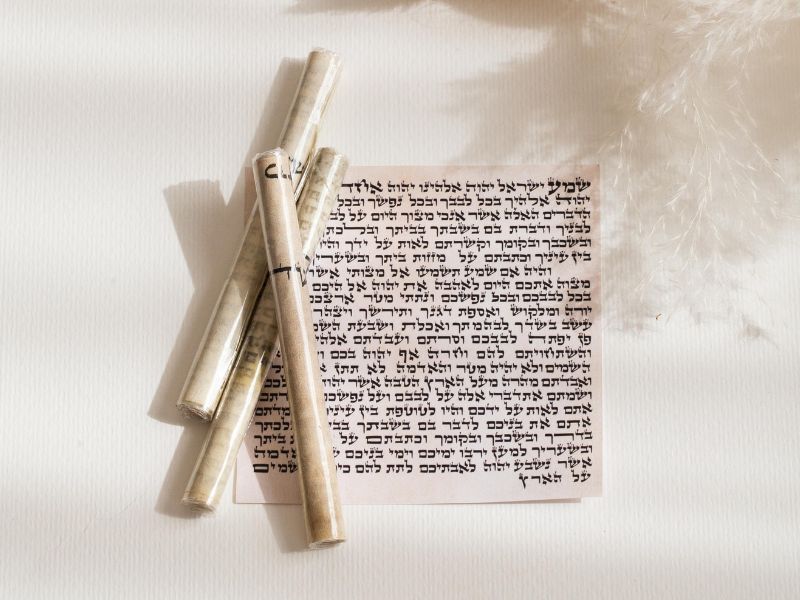 שמע ישראל יהוה אלהינו יהוה אחד
יהוה אלהיך בכל לבבך ובכל נפשך ובכל
הדברים האלה אשר אנכי מצוך היום על
לבניך ודברת בם בשבתך בביתך ובלכתך
ובשכבך ובקומך וקשרתם לאות על ידך והיו
בין עיניך וכתבתם על מזזות ביתך ובשעריך
והיה אם שמע תשמעו אל מצותי אשר
מצוה אתכם היום לאהבה את יהוה אלהיכם
בכל לבבכם ובכל נפשכם ונתתי מטר ארצכם
יורה ומלקוש ואספת דגנך ותירשך ויצהרך
עשב בשדך לבהמתך ואכלת ושבעת
פן יפתה לבבכם וסרתם ועבדתם
והשתחויתם להם וחרה אף יהוה בכם
השמים ולא יהיה מטר והאדמה לא תתן
ואבדתם מהרה מעל הארץ הטבה אשר יהוה
ושמתם את דברי אלה על לבבכם ועל
אתם לאות על ידכם והיו לטוטפת בין
אתם את בניכם לדבר בם בשבתך
בדרך ובשכבך ובקומך וכתבתם על ביתך
ובשעריך למען ירבו ימיכם וימי בניכם
אשר נשבע יהוה לאבתיכם לתת להם
על הארץ